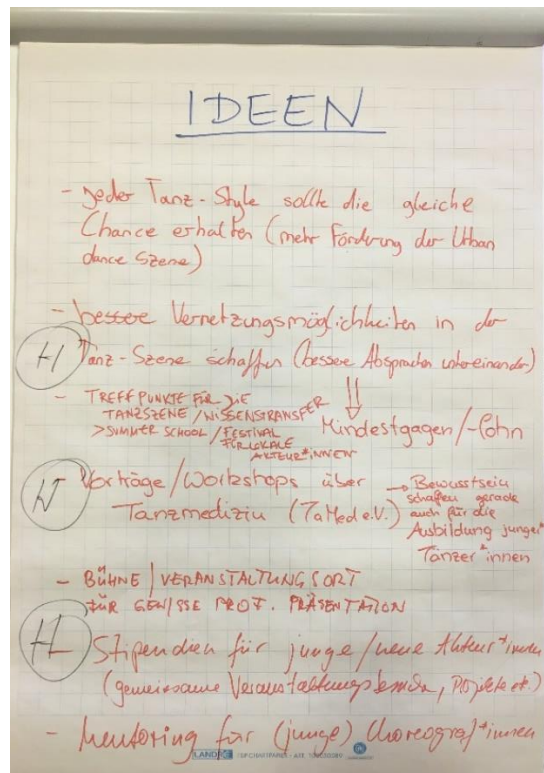 IDEEN
- Jeder Tanz-Style sollte die gleiche
Chance erhalten (mehr Förderung der Urban
dance Szene)
- bessere Vernetzungsmöglichkeiten in der
Tanz-Szene schaffen (bessere Absprachen untereinander)
- TREFFPUNKTE FÜR DIE
TANZSZENE / WISSENSTRANSFER
> SUMMER SCHOOL / FESTIVAL
FÜR LOKALE
AKTEUR*INNEN
Mindestgagen/-lohn
- Vorträge/Workshops über
Tanzmedizin (TaMed e.V.)
→ Bewusstsein
schaffen gerade
auch für die
Ausbildung junger
Tänzer*innen
- BÜHNE / VERANSTALTUNGSORT
FÜR GEWISSE PROF. PRÄSENTATION
- Stipendien für junge/neue Akteur*innen
(gemeinsame Projekte etc.)
- Mentoring für (junge) Choreograf*innen
LANDRÉ